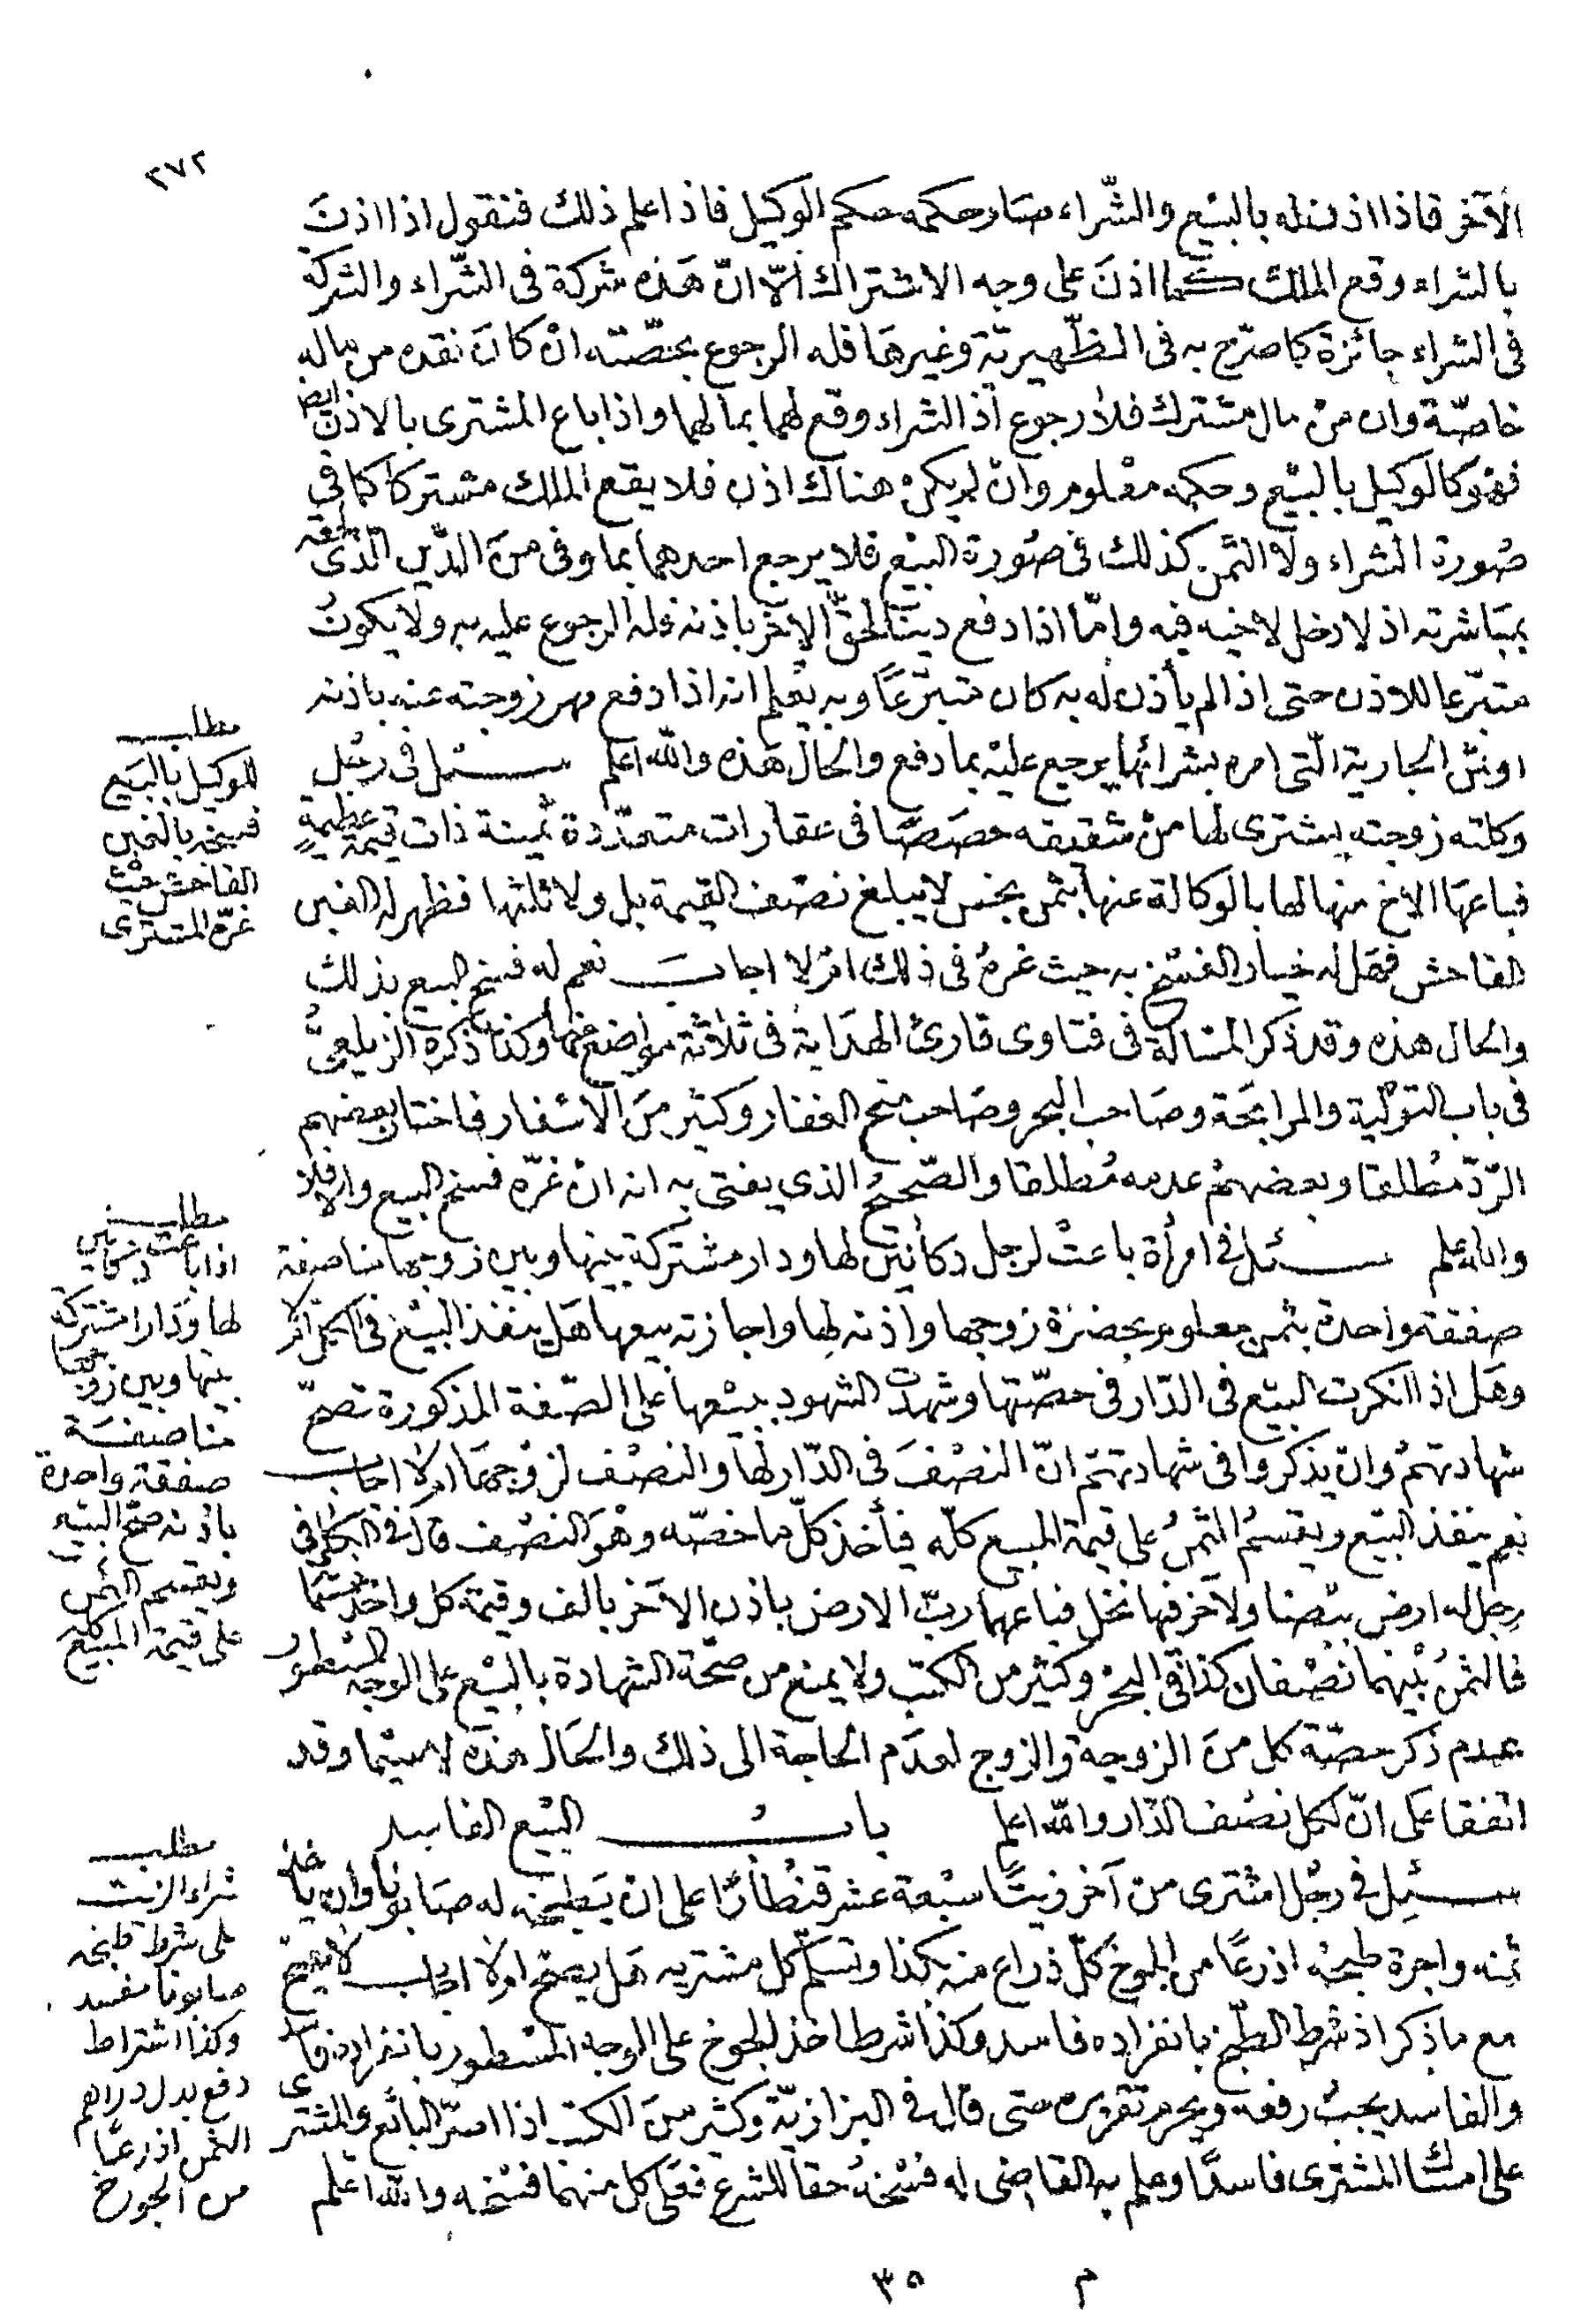 ٢٧٢
الآخر فاذا اذن له بالبيع والشراء صار حكمه حكم الوكيل فاذا علم ذلك فنقول اذا اذن
بالشراء وقع الملك كما اذن على وجه الاشتراك الّا انّ هذه شركة فى الشّراء والشركة
فى الشراء جائزة كما صرّح به فى الظّهيريّة وغيرها فله الرجوع بحصّته ان كان نقده من ماله
خاصّة وان من مال مشترك فلا رجوع اذ الشراء وقع لهما بمالهما واذا باع المشترى بالاذن ايضا
فهو كالوكيل بالبيع وحكمه معلوم وان لم يكن هناك اذن فلا يقع الملك مشتركا كما فى
صورة الشراء ولا الثمن كذلك فى صورة البيع فلا يرجع احدهما بما وفى من الدّين الّذى لحقه
بمباشرته اذ لا دخل لاخيه فيه وامّا اذا دفع دينا لحق الاخر باذنه فله الرجوع عليه به ولا يكون
متبرّعا للاذن حتى اذا لم يأذن له به كان متبرّعا وبه يعلم انه اذا دفع مهر زوجته عنه باذنه
او ثمن الجارية الّتى امره بشرائها يرجع عليه بما دفع والحال هذه والله اعلم سئل فى رجل
وكلته زوجته يشترى لها من شقيقه حصصا فى عقارات متعدّدة ثمينة ذات قيمة عظيمة
فباعها الاخ منها لها بالوكالة عنها بثمن بخس لا يبلغ نصف القيمة بل ولا ثلثها فظهر له الغبن
الفاحش فهل له خيار الفسخ به حيث غره فى ذلك ام لا اجاب نعم له فسخ البيع بذلك
والحال هذه وقد ذكر المسالة فى فتاوى قارئ الهداية فى ثلاثة مواضع منها وكذا ذكره الزيلعى
فى باب التولية والمرابحة وصاحب البحر وصاحب منح الغفار وكثير من الاسفار فاختار بعضهم
الرّد مطلقا وبعضهم عدمه مطلقا والصّحيح الذي يفتى به انه ان غرّه فسخ البيع والا فلا
والله اعلم سئل فى امرأة باعت لرجل دكانين لها ودار مشتركة بينها وبين زوجها مناصفة
صفقة واحدة بثمن معلوم بحضرة زوجها واذنه لها واجازته بيعها هل ينفذ البيع فى الكل ام لا
وهل اذا انكرت البيع فى الدّار فى حصّتها وشهدت الشهود ببيعها على الصّفة المذكورة تصحّ
شهادتهم وان يذكروا فى شهادتهم انّ النصف فى الدّار لها والنصف لزوجها ام لا اجاب
نعم ينفذ البيع ويقسم الثمن على قيمة المبيع كلّه فيأخذ كلّ ما خصّه وهو النصف قال فى الكافى
رجل له ارض بيضا ولاخر فيها نخل فباعهما ربّ الارض باذن الآخر بالف وقيمة كل واحد خمسمائة
فالثمن بينهما نصفان كذا فى البحر وكثير من الكتب ولا يمنع من صحّة الشهادة بالبيع على الوجه المسطور
عدم ذكر حصّة كل من الزوجة والزوج لعدم الحاجة الى ذلك والحال هذه لا سيّما وقد
اتفقا على انّ لكل نصف الدّار والله اعلم باب البيع الفاسد
سئل فى رجل اشترى من آخر زيتا سبعة عشر قنطارا على ان يطبخه له صابونا وان ياخذ
ثمنه واجرة طبخه اذرعا من الجوخ كلّ ذراع منه بكذا وتسلّم كل مشتريه هل يصحّ ام لا اجاب لا يصحّ
مع ما ذكر اذ شرط الطّبخ بانفراده فاسد وكذا شرط اخذ الجوخ على الوجه المسطور بانفراده فاسد
والفاسد يجب رفعه ويحرم تقريره حتى قال فى البزازيّة وكثير من الكتب اذا اصرّ البائع والمشترى
على امساك المشترى فاسدا وعلم به القاضى له فسخه حقا للشرع فعلى كل منهما فسخه والله اعلم
مطلب
للوكيل بالبيع
فسخه بالغبن
الفاحش حيث
غره المشترى
مطلب
اذا باعت دكانين
لها ودارا مشتركة
بينها وبين زوجها
مناصفة
صفقة واحدة
باذنه صح البيع
ويقسم الثمن
على قيمة المبيع كله
مطلب
شراء الزيت
على شرط طبخه
صابونا مفسد
وكذا اشتراط
دفع بدل دراهم
الثمن اذرعا
من الجوخ
م ٣٥